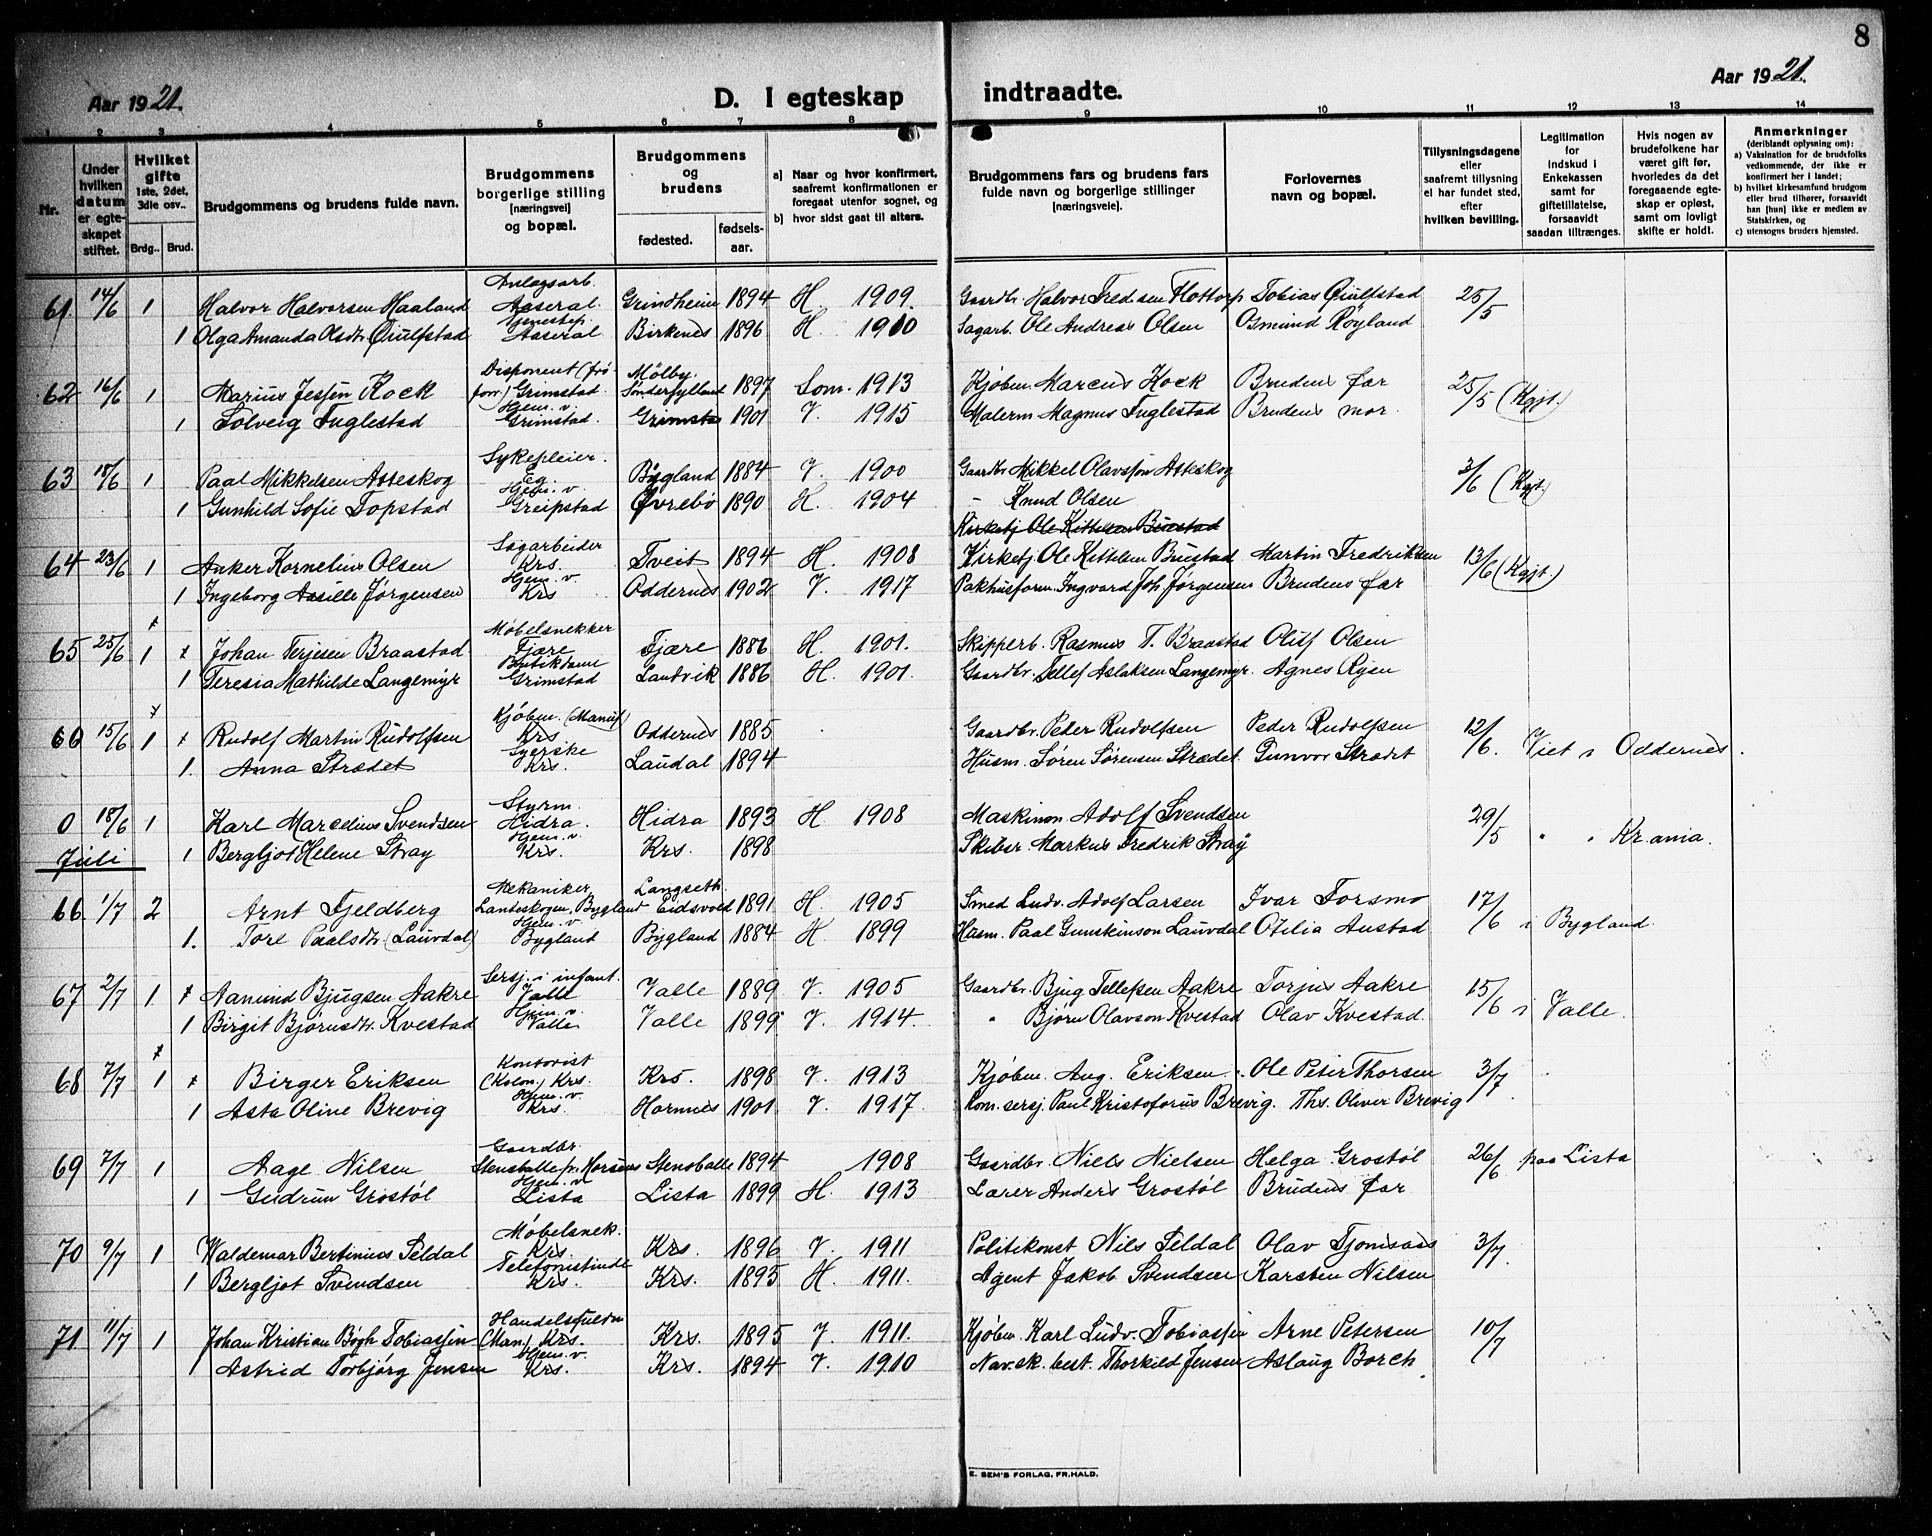 8
Aar 1921. D. I egteskap indtraadte. Aar 1921.
1 2 3 4 5 6 7 8 9 10 11 12 13 14
Nr.
Under hvilken datum er egteskapet stiftet.
Hvilket gifte 1ste, 2det, 3die osv..
Brdg.. Brud.
Brudgommens og brudens fulde navn.
Brudgommens borgerlige stilling [næringsvei] og bopæl.
Brudgommens og brudens
fødested. fødselsaar.
a) Naar og hvor konfirmert, saafremt konfirmationen er foregaaet utenfor sognet, og
b) hvor sidst gaat til alters.
Brudgommens fars og brudens fars fulde navn og borgerlige stillinger [næringsveie].
Forlovernes navn og bopæl.
Tillysningsdagene eller saafremt tillysning ei har fundet sted, efter hvilken bevilling.
Legitimation for indskud i Enkekassen samt for giftetillatelse, forsaavidt saadan tiltrænges.
Hvis nogen av brudefolkene har været gift før, hvorledes da det foregaaende egteskap er opløst, samt om lovligt skifte er holdt.
Anmerkninger (deriblandt oplysning om):
a) Vaksination for de brudefolks vedkommende, der ikke er konfirmert her i landet;
b) hvilket kirkesamfund brudgom eller brud tilhører, forsaavidt han [hun] ikke er medlem av Statskirken, og
c) utensogns bruders hjemsted.
61. 14/6 1 Halvor Halvorsen Haaland Anlagsarb. Aaseral Grindheim 1894 H. 1909. Gaardbr. Halvor Fredsen Flottorp Tobias Øiulfstad 25/5
1 Olga Amanda Olsdtr. Øiulfstad Tjenestep. Aaseral Birkenes 1896 H. 1910 Sagarb. Ole Andreas Olsen Osmund Røyland
62 16/6 1 Marius Jessen Kock Disponent (frøforr.) Grimstad Mølby. Sønderjylland 1897 Som. 1913 Kjøbm. Marcus Kock Brudens far 25/5 (Kgjt.)
1 Solveig Fuglestad Hjem. v. Grimstad. Grimstad 1901 V. 1915 Malerm. Magnus Fuglestad Brudens mor.
63 18/6 1 Paal Mikkelsen Asteskog Sykepleier. Eg. Bygland 1884 V. 1900 Gaardbr. Mikkel Olavsson Asteskog 3/6 (Kgjt.)
1 Gunhild Sofie Topstad Hjem. v. Greipstad Øvrebø 1890 H. 1904 - Knud Olsen
Kirketj. Ole Kittelsen Buestad
64 23/6 1 Anker Kornelius Olsen Sagarbeider Krs. Tveit 1894 H. 1908 Kirketj. Ole Kittelsen Buestad Martin Fredriksen 13/6 (Kgjt.)
1 Ingeborg Aasille Jørgensen Hjem. v. Krs Oddernes 1902 V. 1917 Pakhusform. Ingvard Joh. Jørgensen Brudens far
65 25/6 1 Johan Terjesen Braastad Møbelsnekker Fjære Fjære 1886 H. 1901. Skipperb. Rasmus T. Braastad Oluf Olsen
1 Teresia Mathilde Langemyr Butikdame Grimstad Landvik 1886 H. 1901. Gaardbr. Tellef Aslaksen Langemyr. Agnes Ryen
60 15/6 1 Rudolf Martin Rudolfsen Kjøbm. (Manuf) Krs Oddernes 1885 Gaardbr. Peder Rudolfsen Peder Rudolfsen 12/6. Viet i Oddernes.
1. Anna Strædet Syerske Krs. Laudal 1894 Husm. Søren Sørensen Strædet. Gunvor Strædet
0 18/6 1 Karl Marcelius Svendsen Styrm. Hidra. Hidra 1893 H 1908 Maskinm. Adolf Svendsen 29/5 " " Kr.ania.
Juli 1 Bergljot Helene Stray Hjem. v. Krs. Krs. 1898 Skibsr. Markus Fredrik Stray
66 1/7 2 Arnt Fjeldberg Mekaniker, Lanteskogen, Bygland Langseth. Eidsvold 1891 H. 1905 Smed Ludv. Adolf Larsen Ivar Forsmo 17/6 i Bygland.
1. Tore Paalsdtr. (Lauvdal) Hjem. v. Bygland Bygland 1884 H 1899 Husm. Paal Gunskinson Lauvdal Otilia Austad
67 2/7 1 Aanund Bjugsen Aakre Sersj. i infant. Valle Valle 1889 V. 1905 Gaardbr. Bjug Tellefsen Aakre Torjus Aakre 15/6 i Valle.
1 Birgit Bjørnsdtr. Kvestad Hjem. v. Valle Valle 1899 V. 1914. " Bjørn Olavson Kvestad Olav Kvestad.
68 7/7 1 Birger Eriksen Kontorist (Kolon.) Krs. Krs. 1898 V. 1913 Kjøbm. Aug. Eriksen Ole Peter Thorsen 3/7
1 Asta Oline Brevig Hjem. v. Krs. Hornnes 1901 V. 1917. Kom. sersj. Paul Kristoforus Brevig. Ths. Oliver Brevig
69 7/7 1 Aage Nilsen Gaardbr. Stensballe pr. Horsens Stensballe 1894 1908 Gaardbr. Niels Nielsen Helga Grostøl 26/6 paa Lista
1 Gudrun Grostøl Hjem. v. Lista Lista 1899 H. 1913 Lærer Anders Grostøl Brudens far
70 9/7 1 Waldemar Bertinius Seldal Møbelsnek. Krs. Krs. 1896 V. 1911 Politikonst Nils Seldal Olav Tjomsaas 3/7.
1 Bergljot Svendsen Telefonistinde Krs. Krs. 1895 H. 1911. Agent Jakob Svendsen Karsten Nilsen
71 11/7 1 Johan Kristian Bøgh Tobiassen Handelsfuldm (Man.) Krs. Krs. 1895 V. 1911. Kjøbm. Karl Ludv. Tobiassen Arne Petersen 10/7
1 Astrid Torbjørg Jensen Hjem. v. Krs. Krs. 1894 V. 1910 Nav.sk.best. Thorkild Jensen Aslaug Borch
E. SEM'S FORLAG, FR.HALD.